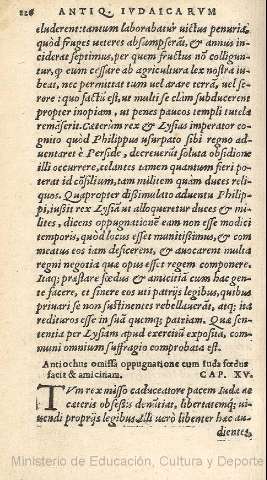 226 ANTIQ. IVDAICARVM
eluderent: tantum laborabatur uictus penuria,
quòd fruges ueteres absumpserãt, & annus in-
ciderat septimus, per quem fructus nõ colligun-
tur, q cum cessare ab agricultura lex nostra iu-
beat, nec permittat tum uel arare terrã, uel se-
rere: quo factũ est, ut multi se clàm subducerent
propter inopiam, ut penes paucos templi tutela
remãserit. Cæterùm rex & Lysias imperator co-
gnito quòd Philippus usurpato sibi regno ad-
uentaret è Perside, decreuerũt soluta obsidione
illi occurrere, celantes tamen quantum fieri po-
terat id cõsilium, tam militem quàm duces reli-
quos. Quapropter dissimulato aduentu Philip-
pi, iussit rex Lysiã ut alloqueretur duces & mi-
lites, dicens oppugnationẽ eam non esse modici
temporis, quòd locus esset munitissimus, & com
meatus eos iam deficerent, & auocarent multa
regni negotia quæ opus esset regem componere.
Itaq; præstare fœdus & amicitiã cum hac gen-
te facere, et sinere eos uti patrijs legibus, quibus
priuari se non sustinentes rebellauerãt, atq; ita
redituros esse in suã quemq; patriam. Quæ sen-
tentia per Lysiam apud exercitũ exposita, com
muni omnium suffragio comprobata est.
Antiochus omissa oppugnatione cum Iuda fœdus
facit & amicitiam. CAP. XV.
TVm rex misso caduceatore pacem Iudæ ac
cæteris obseßis denũtiat, libertatemq; ui-
uendi proprijs legibus. illi uerò libenter hæc au-
dientes,
Ministerio de Educación, Cultura y Deporte